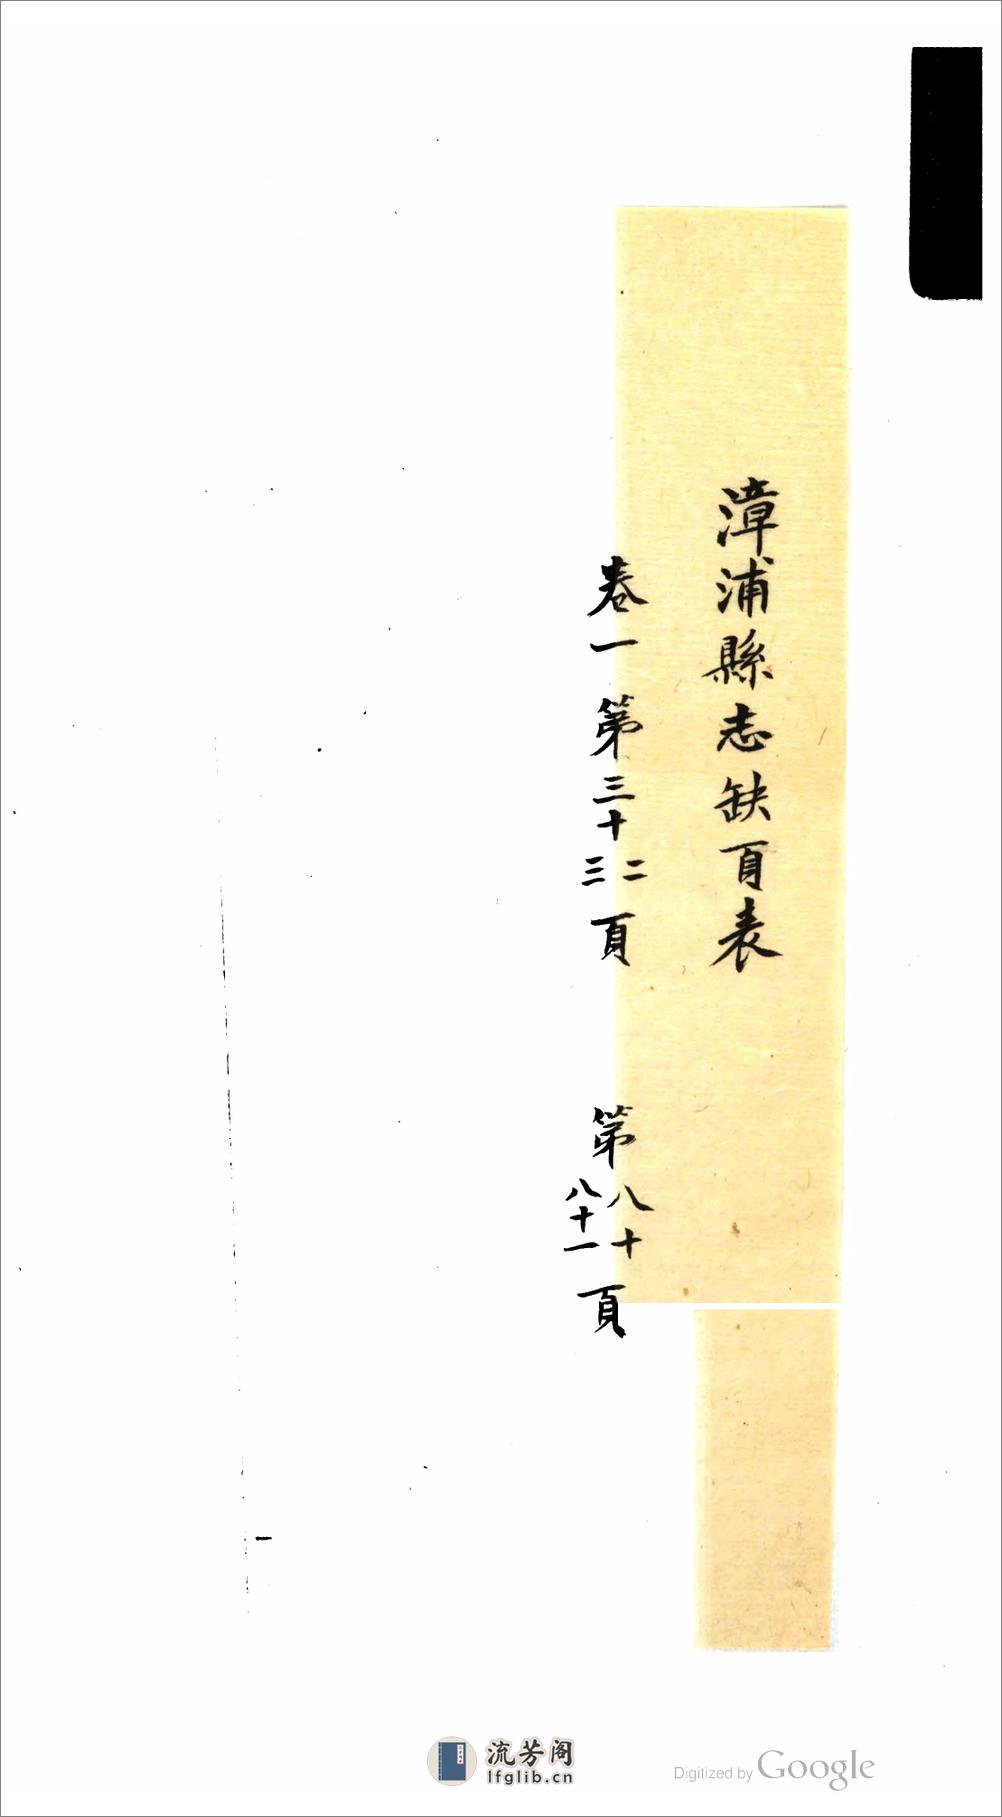 漳浦縣志缺頁表
卷一 第三十二三頁 第八十八十一頁
一
流芳阁
lfglib.cn
Digitized by Google